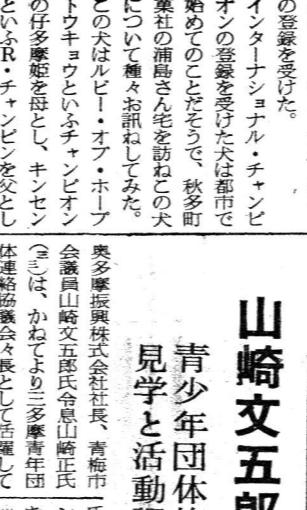 の登録を受けた。
インターナショナル・チャンピ
オンの登録を受けた犬は都市で
始めてのことだそうで、秋多町
菓社の浦島さん宅を訪ねこの犬
について種々お訊ねしてみた。
この犬はルビー・オブ・ホープ
トウキョウといふチャンピオン
の仔多摩姫を母とし、キンセン
といふR・チャンピンを父とし
山崎文五郎
青少年団体
見学と活動
奥多摩振興株式会社社長、青梅市
会議員山崎文五郎氏令息山崎正氏
は、かねてより三多摩青年団
体連絡協議会々長として活躍して